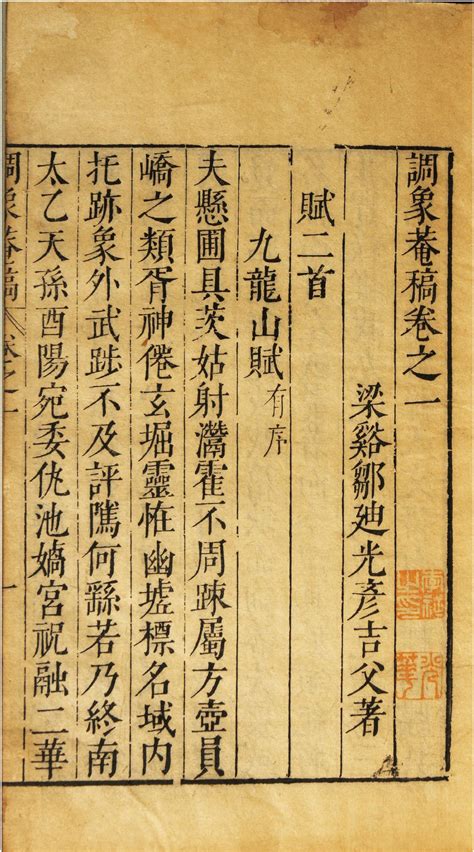 調象菴稿卷之一
梁谿鄒廸光彥吉父著
賦二首
九龍山賦有序
夫懸圃具茨姑射灊霍不周踈屬方壺員
嶠之類胥神僊玄堀靈恠幽墟標名域内
托跡象外武踄不及評隲何繇若乃終南
太乙天孫酉陽宛委仇池嬌宮祝融二華
調象菴稿 卷之一 一